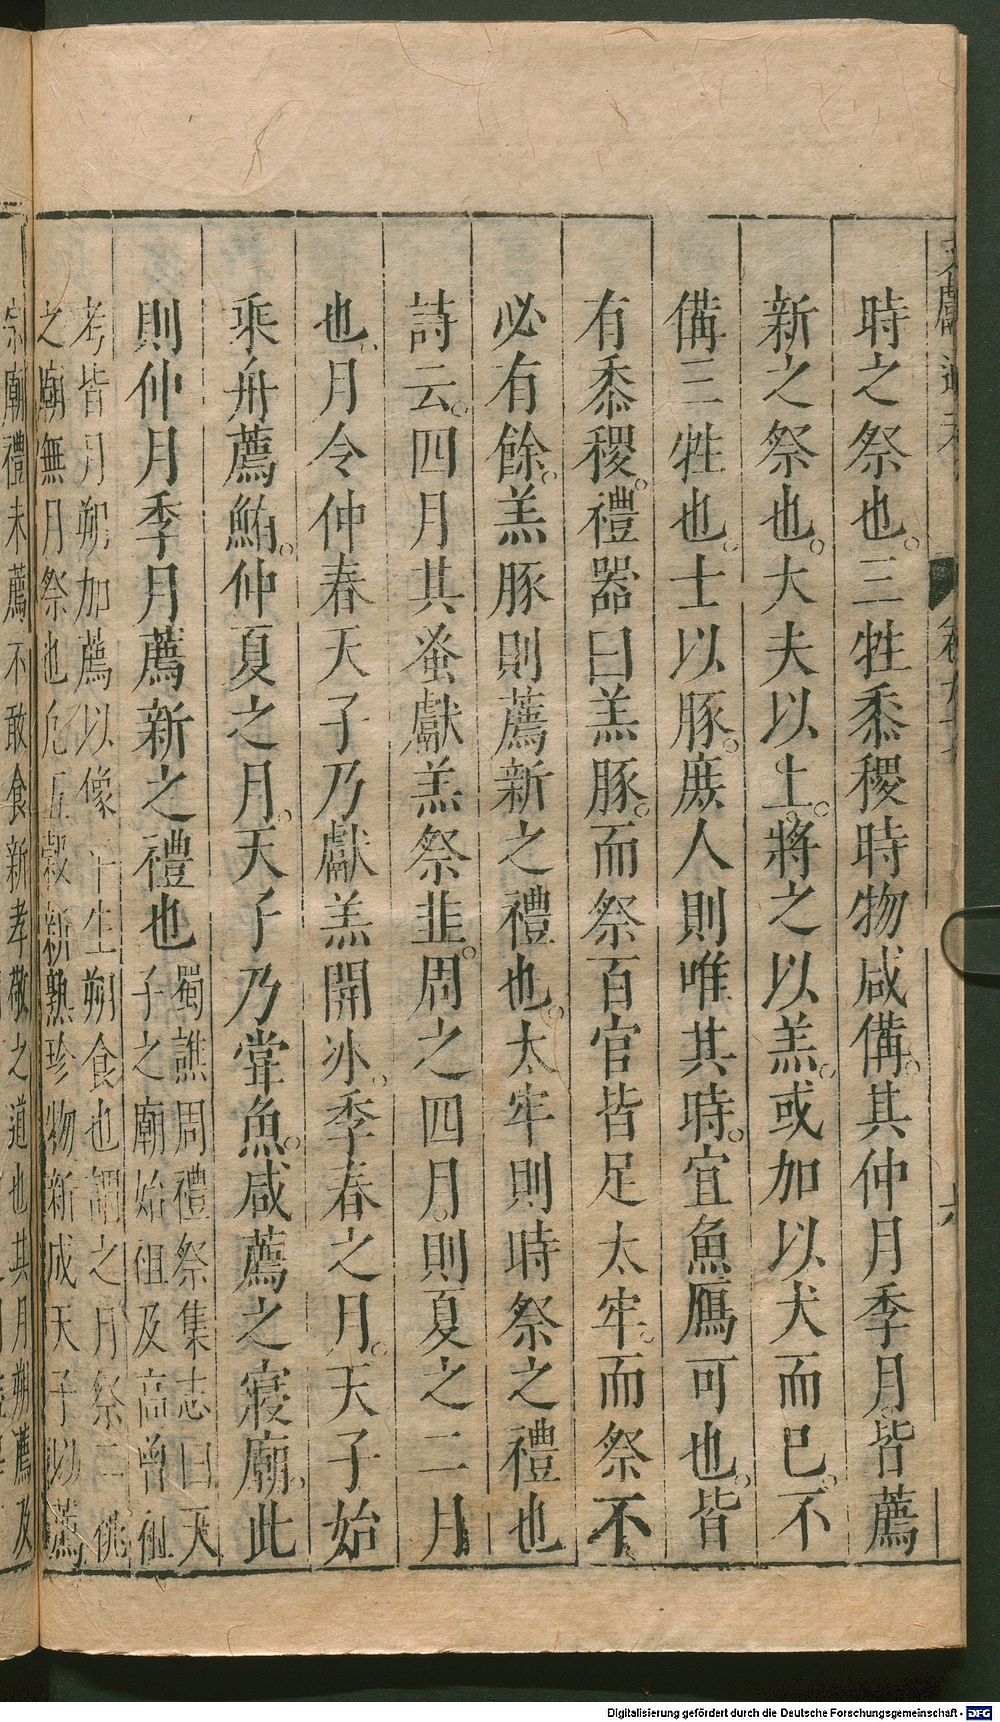 時之祭也。三牲黍稷時物咸備。其仲月季月皆薦
新之祭也。大夫以上。將之以羔。或加以犬而已。不
備三牲也。士以豚。庶人則唯其時。宜魚鴈可也。皆
有黍稷。禮器曰羔豚。而祭百官皆足太牢。而祭不
必有餘。羔豚則薦新之禮也。太牢則時祭之禮也
詩云。四月其蚤獻羔祭韭。周之四月。則夏之二月
也。月令仲春天子乃獻羔開冰。季春之月。天子始
乘舟薦鮪。仲夏之月。天子乃嘗魚。咸薦之寢廟。此
則仲月季月薦新之禮也
蜀譙周禮祭集志曰天
子之廟始祖及高曾祖
考皆月朔加薦以像平生朔食也謂之月祭二祧
之廟無月祭也凡五穀新熟珍物新成天子以薦
宗廟禮未薦不敢食新孝敬之道也其月朔薦及
Digitalisierung gefördert durch die Deutsche Forschungsgemeinschaft - DFG